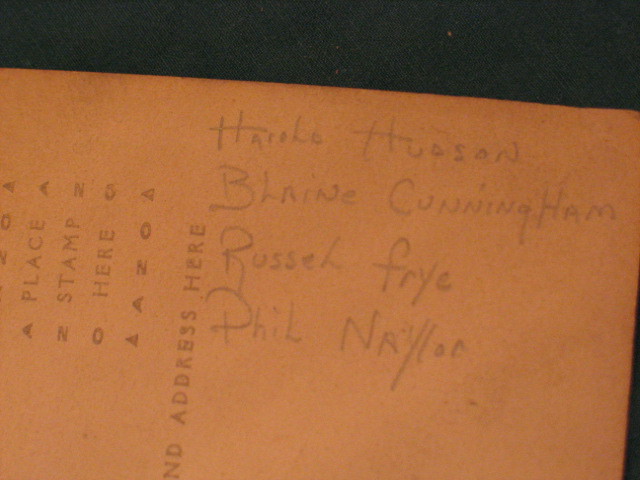 Harold Hudson
Blaine Cunningham
Russel Frye
Phil Naylor
PLACE
STAMP
HERE
ND ADDRESS HERE